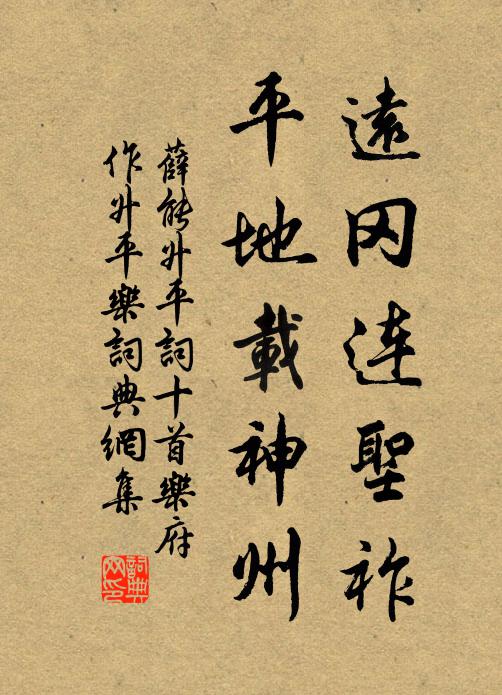 遠冈連聖祚
平地載神州
薛能升平詞十首樂府
作升平樂詞典網集
詞典网印